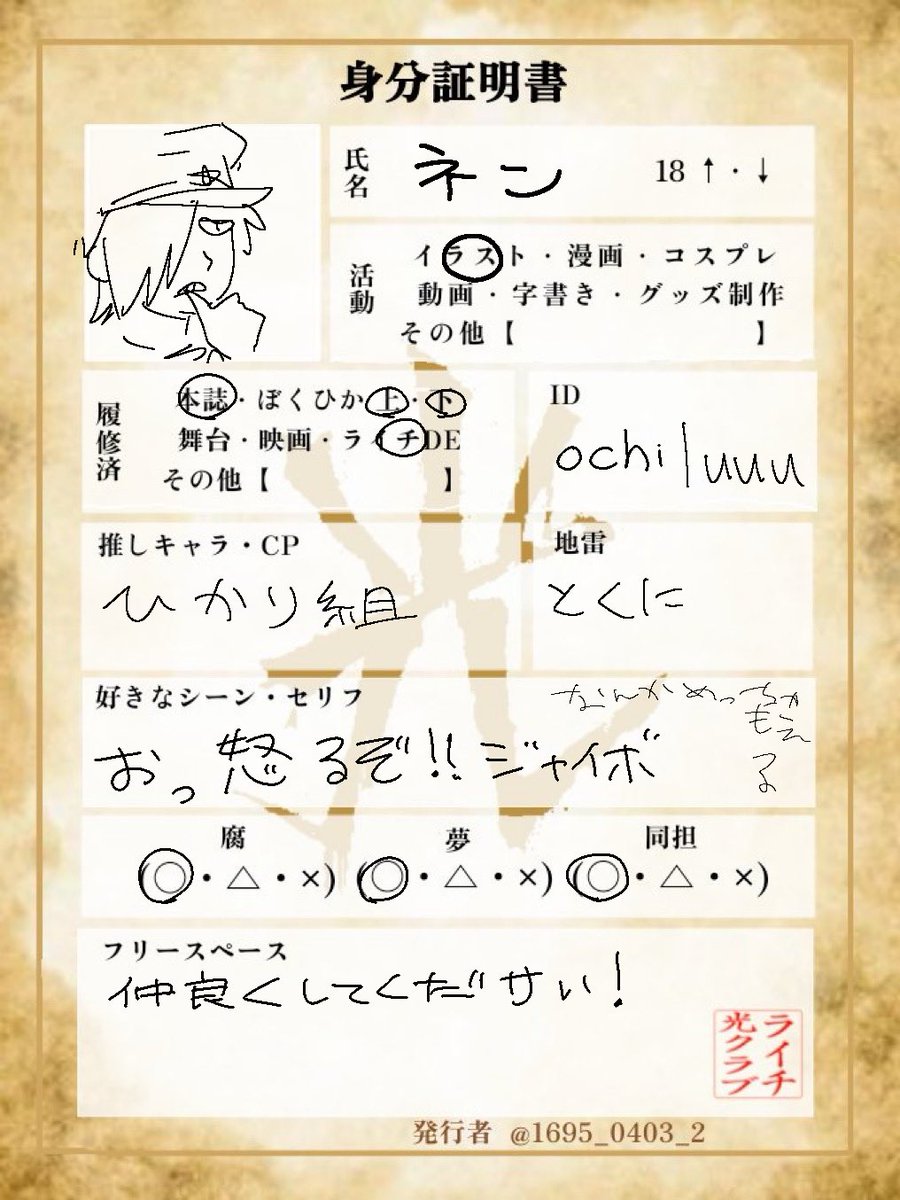 身分証明書
氏名
ネン
18 ↑・↓
活動
イラスト・漫画・コスプレ
動画・字書き・グッズ制作
その他【 】
履修済
本誌・ぼくひか上・下
舞台・映画・ライチDE
その他【 】
ID
ochiluuu
推しキャラ・CP
ひかり組
地雷
とくに
好きなシーン・セリフ
なんかめっちゃ
もえ
てる
おっ怒るぞ!!ジャイボ
腐
夢
同担
(○・△・×) (○・△・×) (○・△・×)
フリースペース
仲良くしてくださいサい!
ライチ
光クラブ
発行者 @1695_0403_2